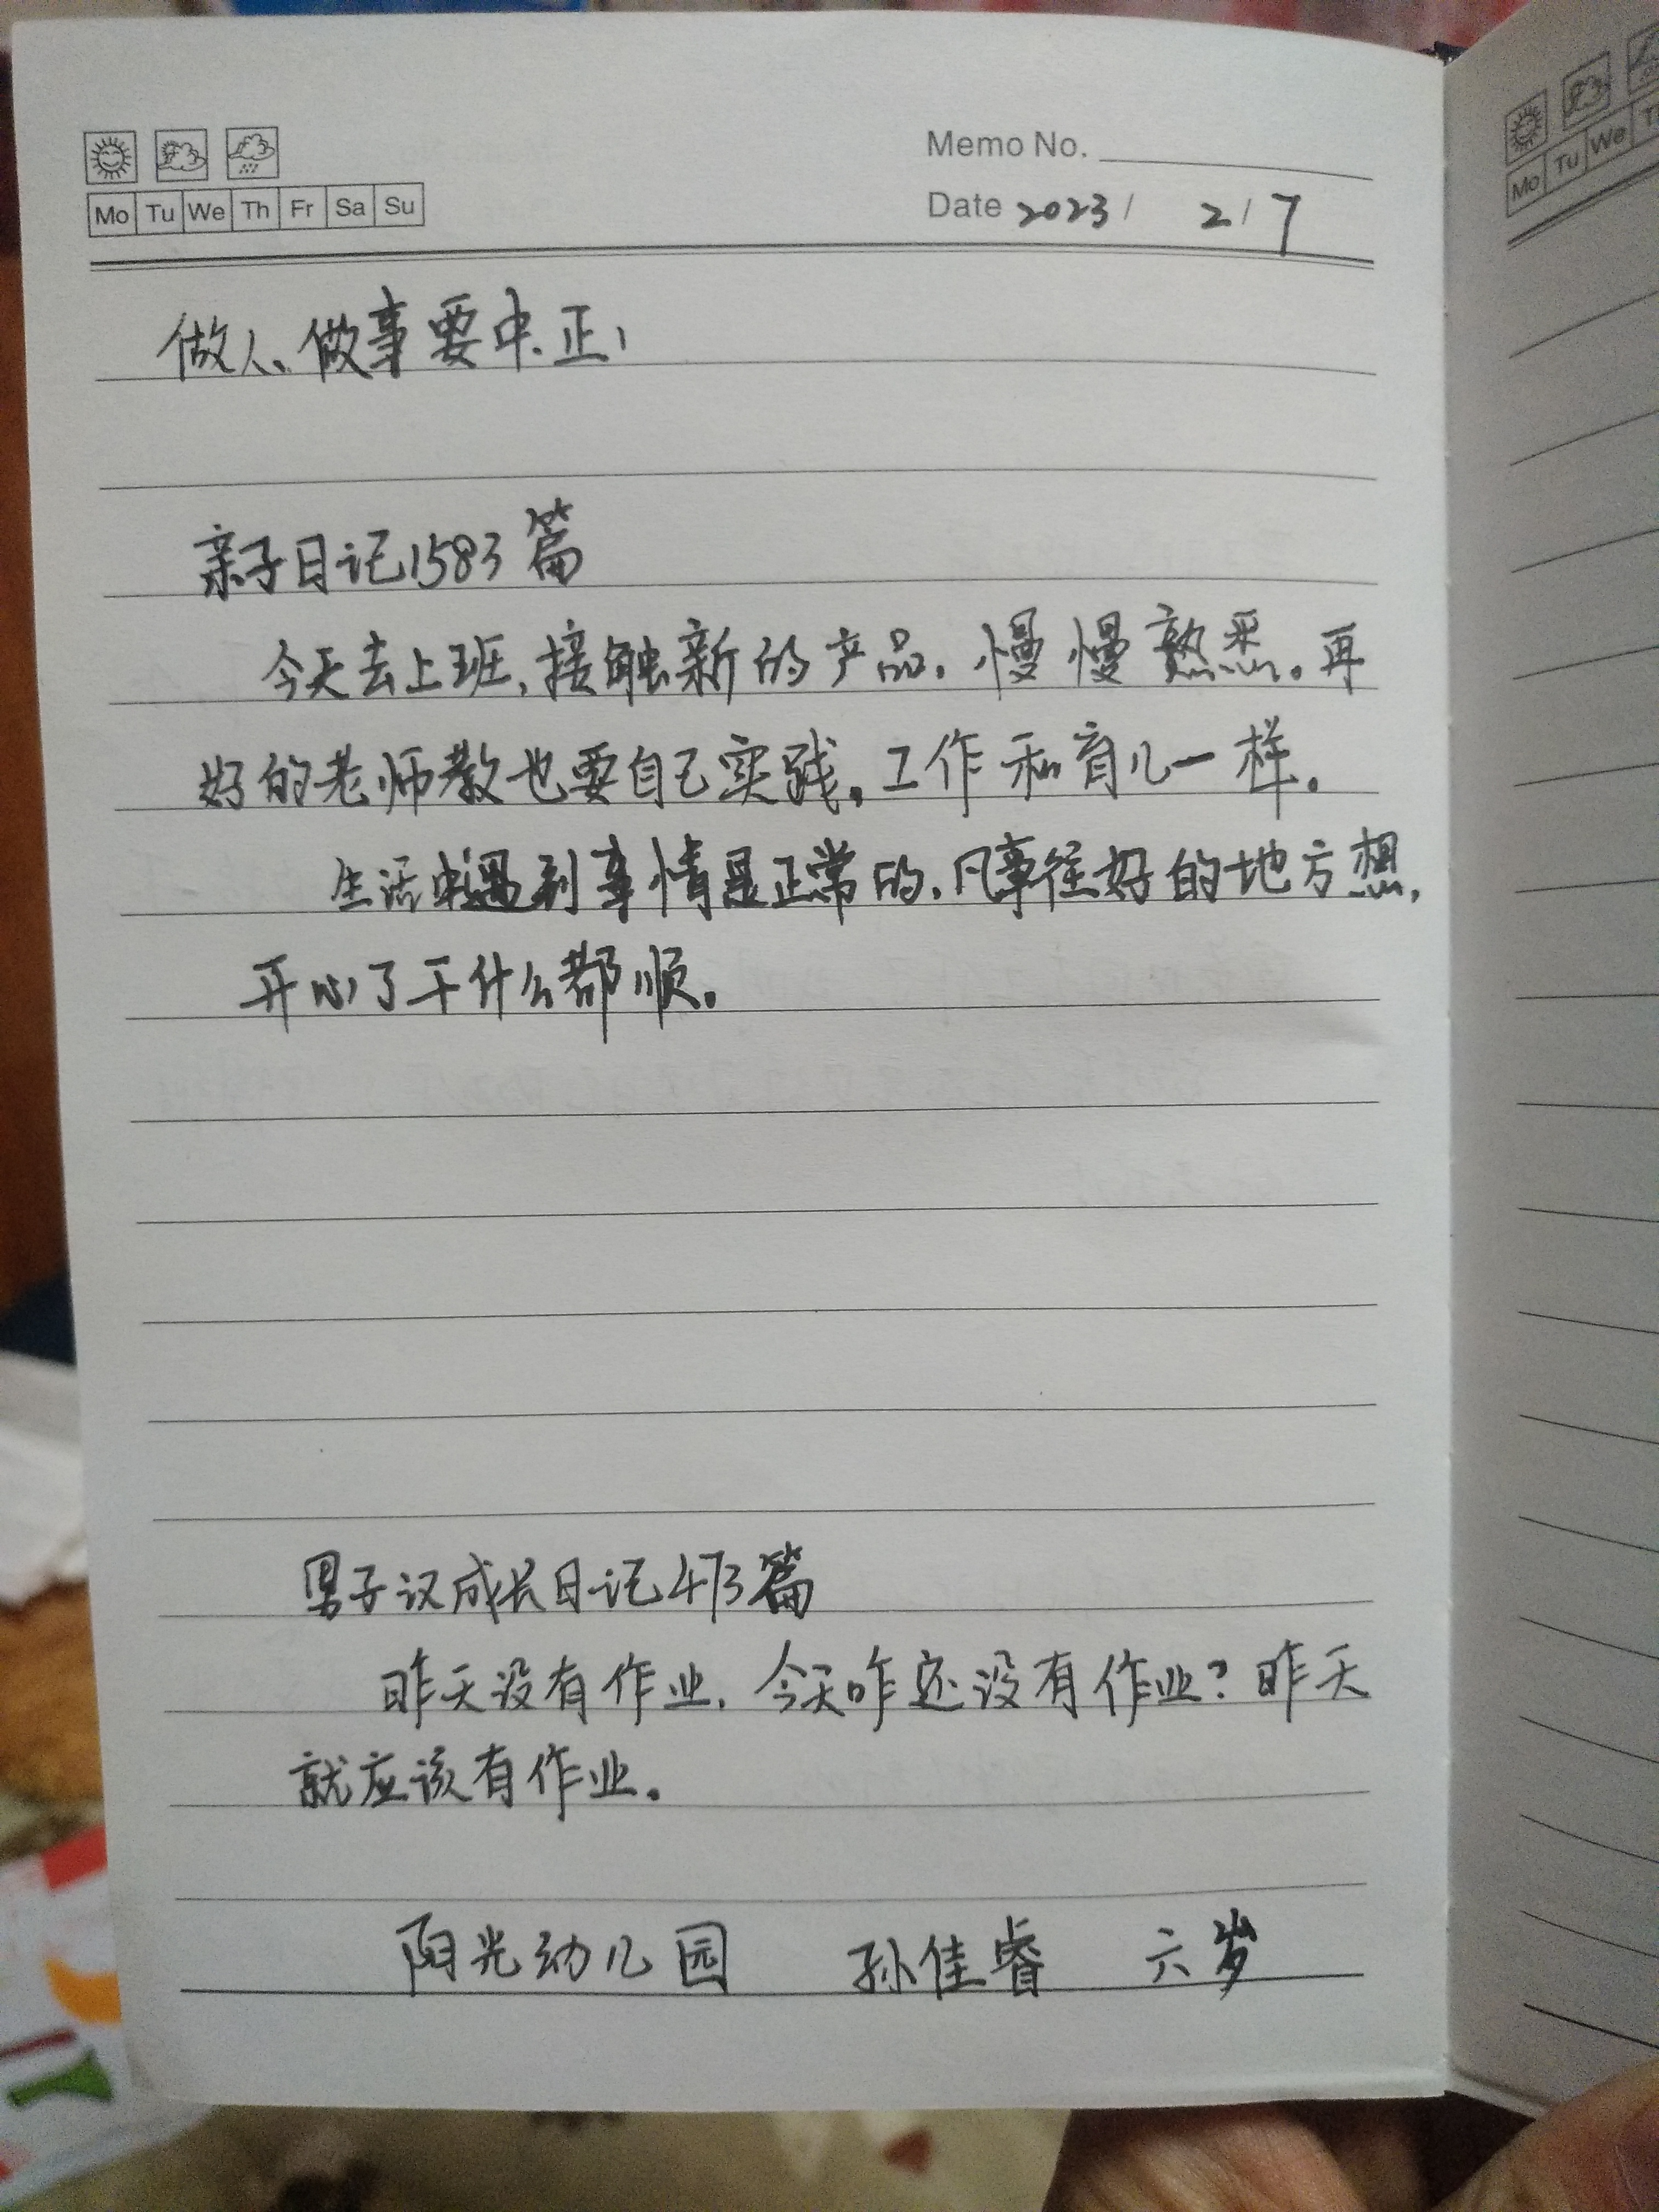 Memo No.
Mo Tu We Th Fr Sa Su
Date 2023 / 2 / 7
做人、做事要中、正,
亲子日记1583篇
今天去上班,接触新的产品,慢慢熟悉。再
好的老师教也要自己实践。工作和育儿一样。
生活中遇到事情是正常的,凡事往好的地方想,
开心了干什么都顺。
男子汉成长日记473篇
昨天没有作业,今天咋还没有作业?昨天
就应该有作业。
阳光幼儿园 孙佳睿 六岁
Mo Tu We